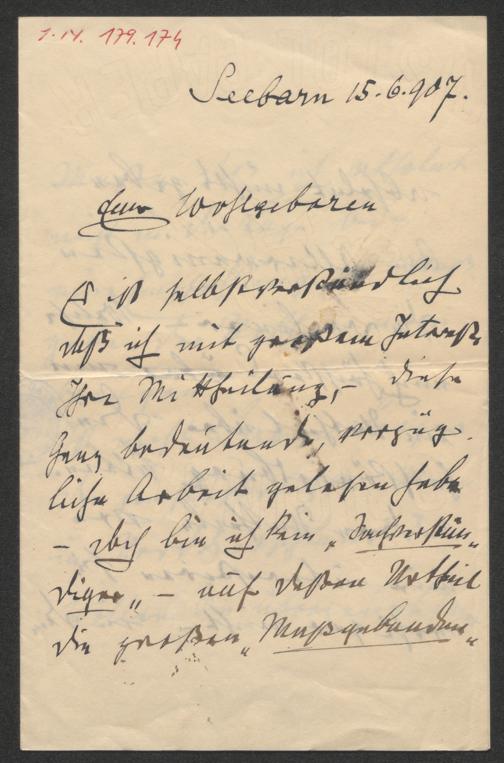 I.N. 179.174
Seebarn 15.6.907.
Euer Wohlgeboren
Es ist selbstverständlich
daß ich mit großem Interesse
Ihre Mittheilung, – diese
ganz bedeutende, vorzüg-
liche Arbeit gelesen habe
– doch bin ich kein „Sachverstän-
diger„ – auf dessen Urtheil
die großen „Maßgebenden„